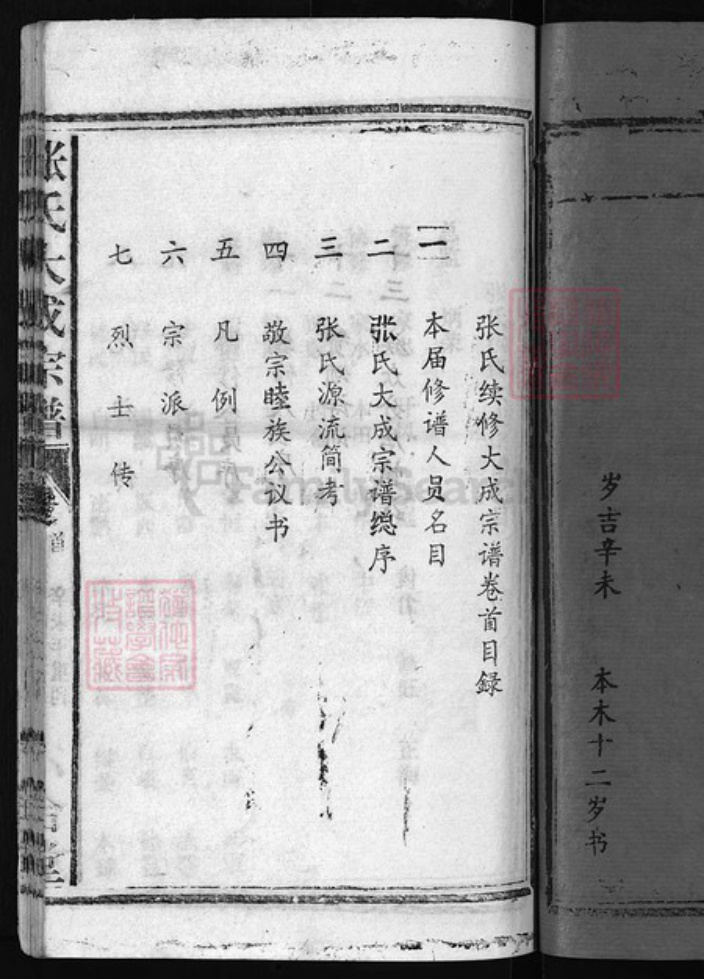 岁吉辛未 本木十二岁书
张氏续修大成宗谱卷首目録
一 本届修谱人员名目
二 张氏大成宗谱総序
三 张氏源流简考
四 敬宗睦族公议书
五 凡例
六 宗派
七 烈士传
张氏大成宗谱
FamilySearch